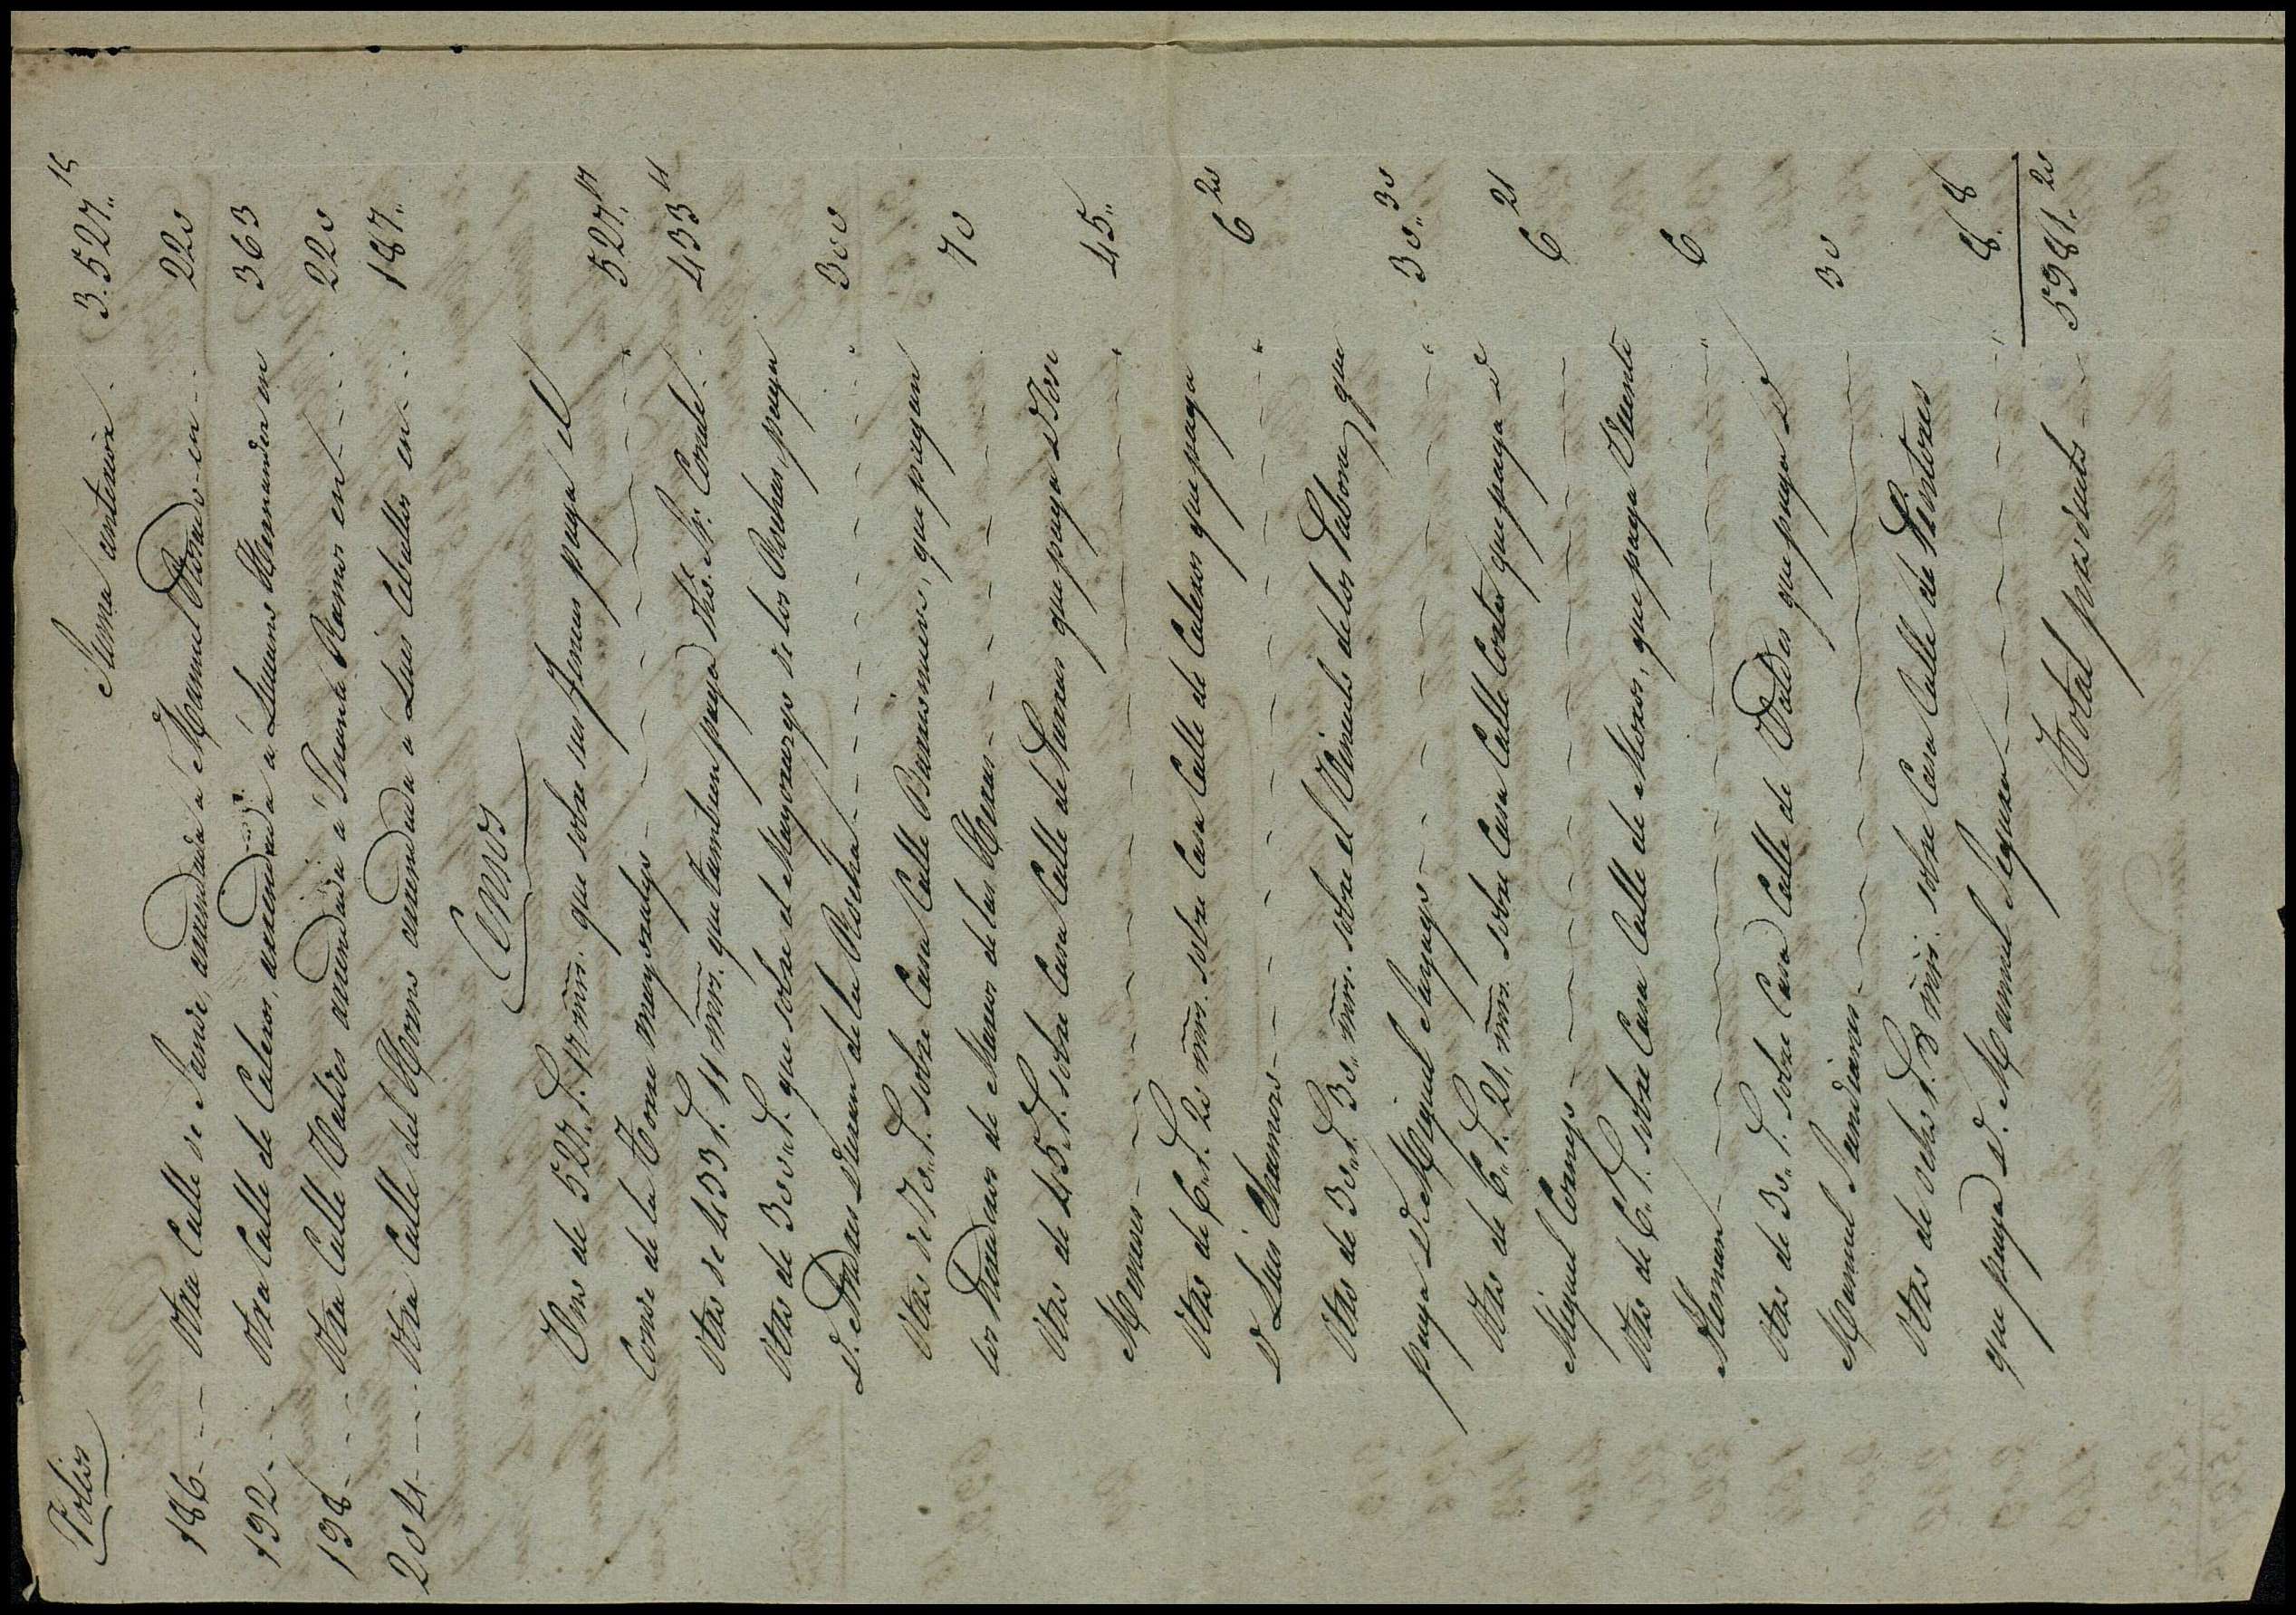 Folios Suma anterior - 3.527,, 15
186 - - - Otra Calle de Sande, arrendada a Manuel Rosado - en - - 220
192 - - - Otra Calle de Caleros, arrendada á Lucas Hernandez en 363
198 - - - Otra Calle Valdes arrendada a Ramos en - - - 220
204 - - - Otra Calle del Horno arrendada a Luis Ceballos en - - 187,,
Censos
Uno de 527,, r. 17 mrs. que sobre sus fincas paga el
Conde de la Torre mayoralgo - - - - - 527,, 17
Otro de 433 r. 11 mrs. que tambien paga dho. Sr. Conde - 433 11
Otro de 300,, r. que sobre el Mayorazgo de los paga
D. Andres de la Rocha - - - - - 300
Otro de 70,, r. sobre Casa Calle que pagan
los Herederos de Marcos de las Heras - - - - 70
Otro de 45,, r. sobre Casa Calle de que paga D. Jose
Meneses - - - - - 45,,
Otro de 6,, r. 20 mrs. sobre Casa Calle de Caleros que paga
D. Luis Chamorro - - - - - 6 20
Otro de 30,, r. 30,, mrs. sobre el de los que
paga D. Miguel - - - - - 30,, 30
Otro de 6,, r. 21, mrs. sobre Casa Calle Cortes que paga D.
Miguel Cornejo - - - - - 6 21
Otro de 6,, r. sobre Casa Calle de Moros, que paga Vicente
- - - - - 6
Otro de 30,, r. sobre Casa Calle de Valdes que paga D.
Manuel - - - - - 30
Otro de ocho r. 8 mrs. sobre Casa Calle de Pintores
que paga D. Manuel Segura - - - - - 8. 8
Total producto - - 5981,, 20